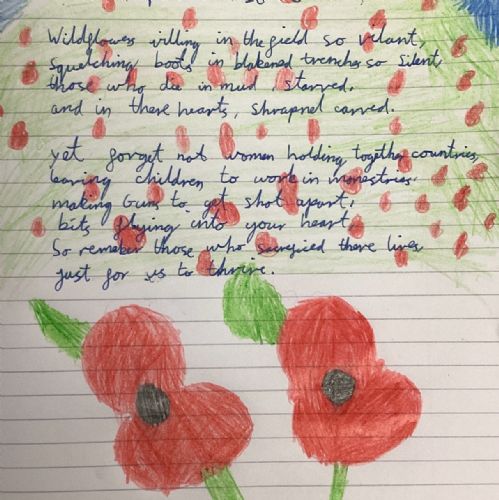 Wildflowers villing in the field so vilant,
Squelching boots in blakened trenches so silent,
those who die in mud, starved,
and in there hearts, shrapnel carved.
yet forget not women holding together countries,
leaving children to work in monestries.
making Guns to get shot apart,
bits flying into your heart,
So remeber those who sacrificed there lives
just for us to thrive.